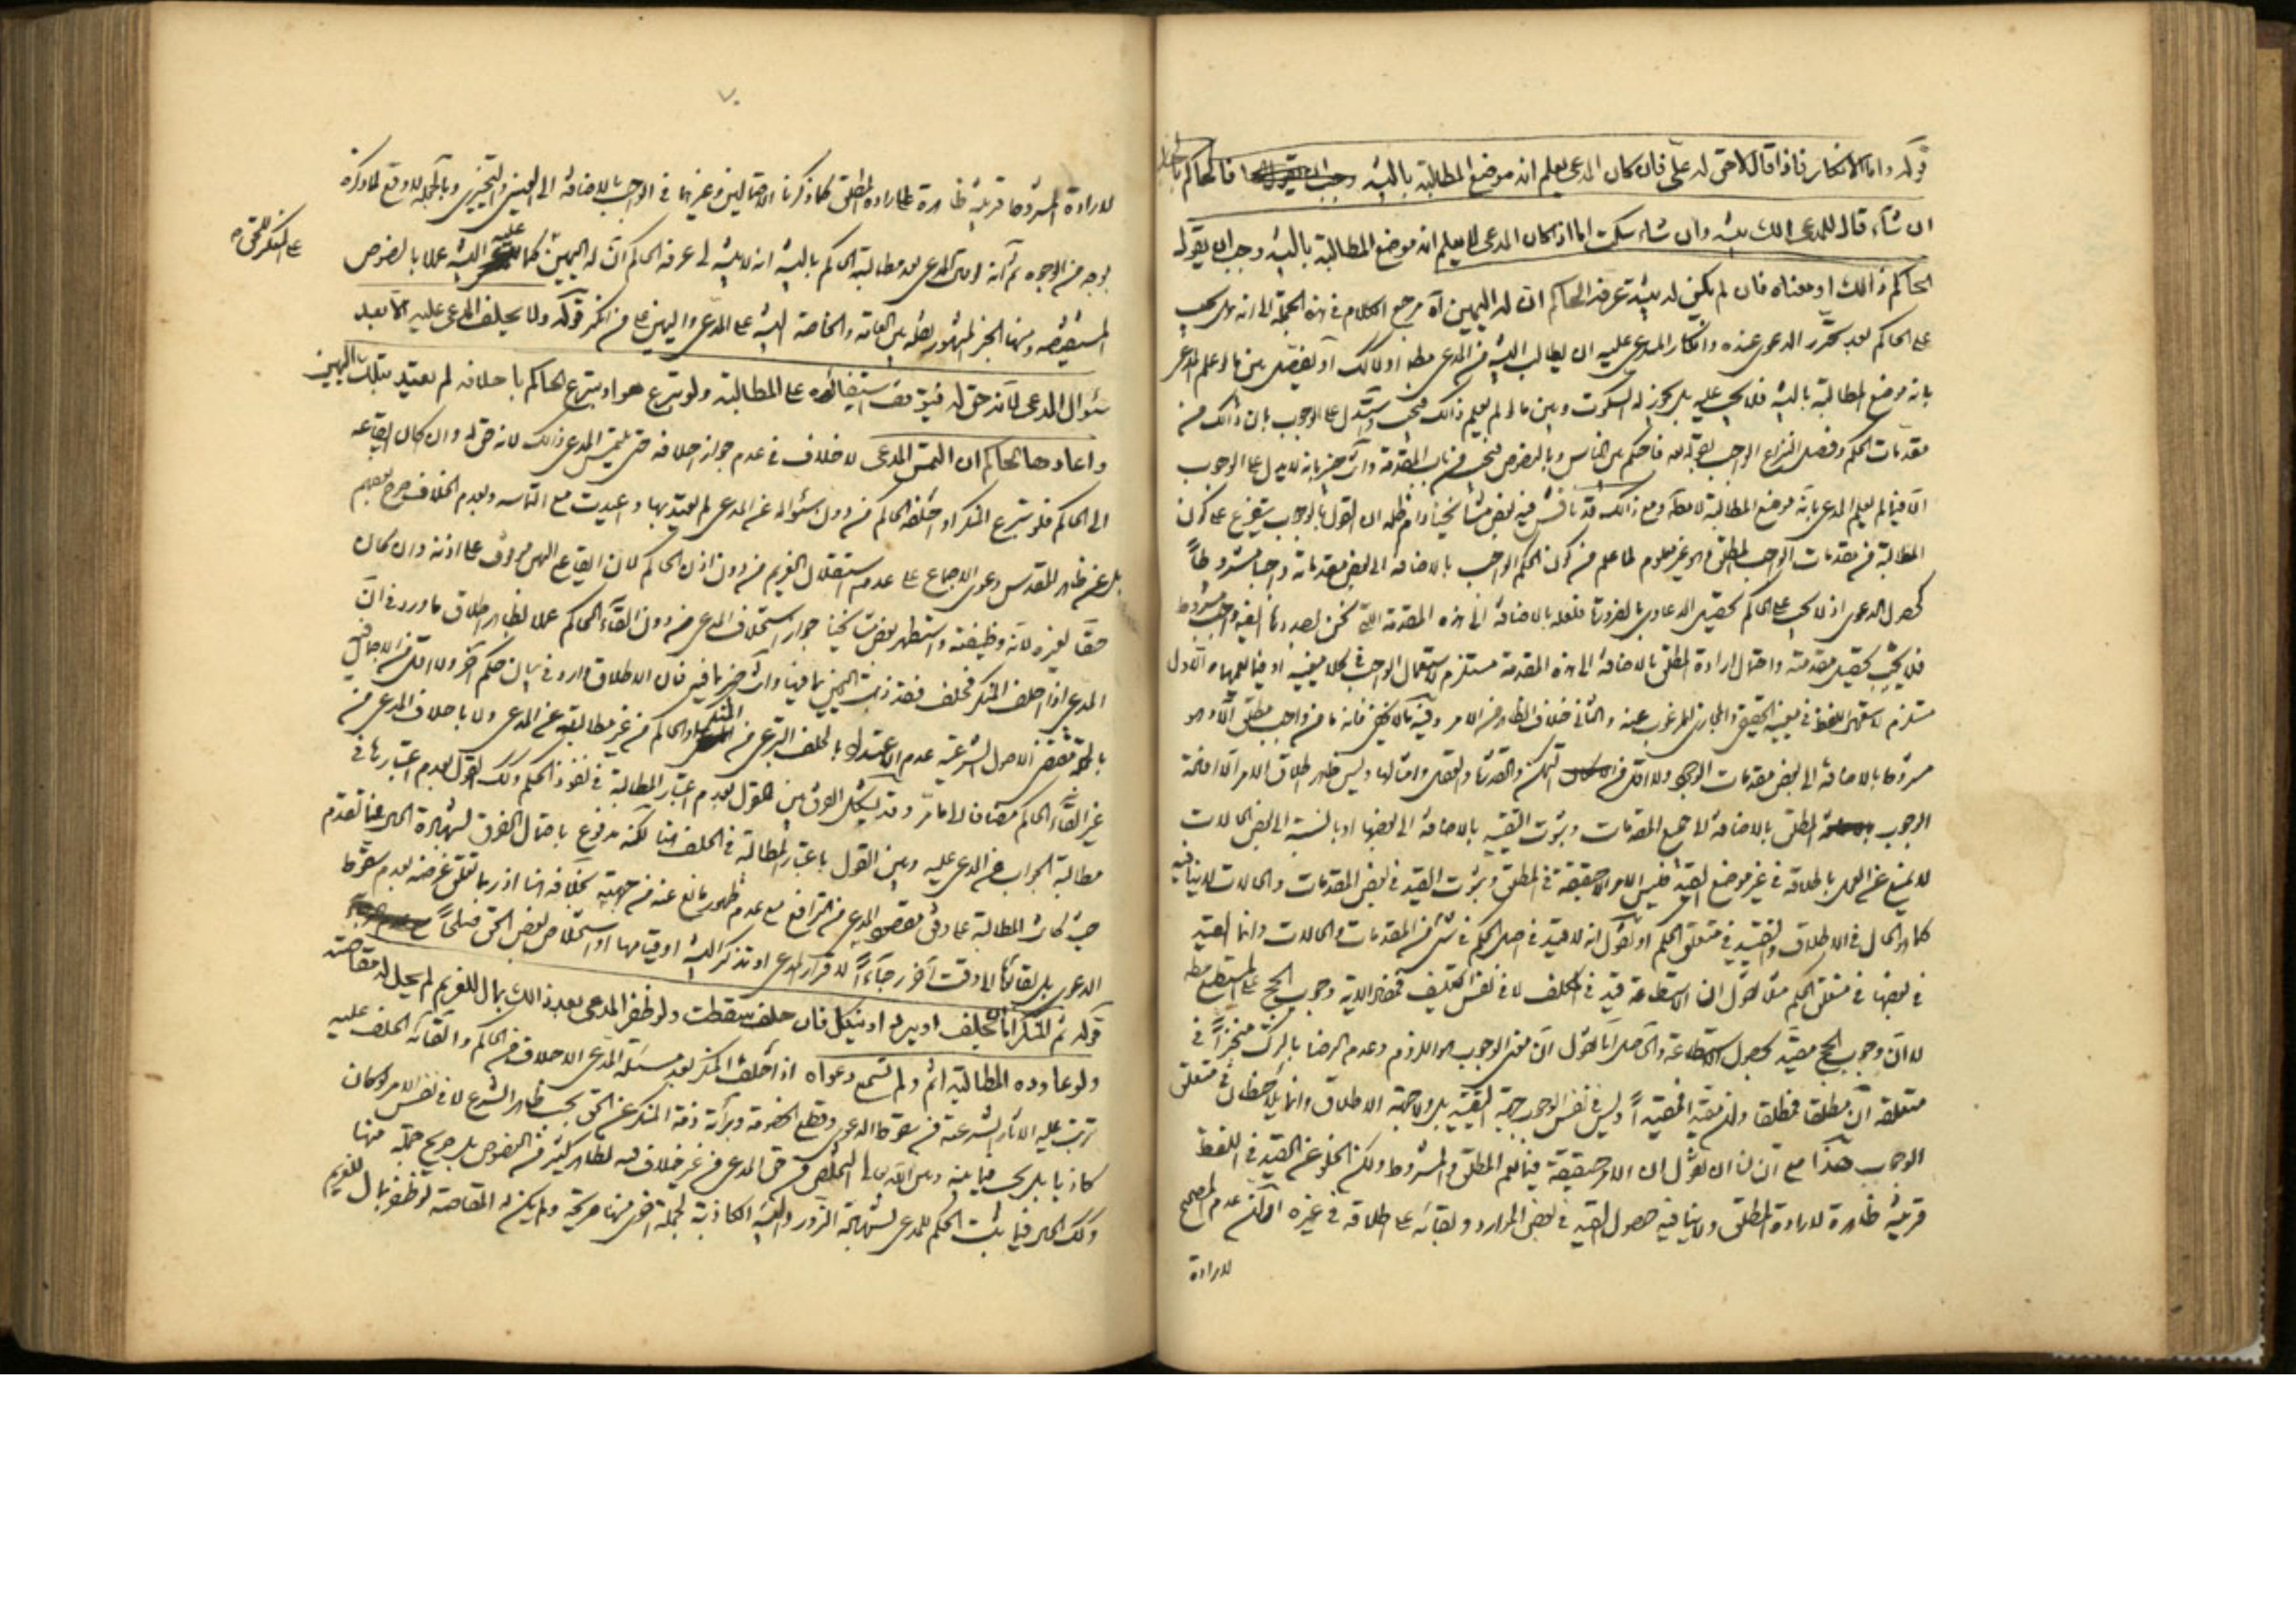 قوله واما الانكار فاذا قال لا حق له علىّ فان كان المدعى يعلم انه موضع المطالبة بالبينة فالحاكم بالخيار
ان شاء قال للمدعى الك بينة وان شاء سكت اما اذا كان المدعى لا يعلم انه موضع المطالبة بالبينة وجب ان يقول له
الحاكم ذالك او معناه فان لم يكن له بينة عرفه الحاكم ان له اليمين آه مرجع الكلام فى هذه الجملة الى انه هل يجب
على الحاكم بعد تحرّر الدعوى عنده وانكار المدعى عليه ان يطالب البينة من المدعى مطلقا او لا كك او يفصل بين ما لو علم المدعى
بانه موضع المطالبة بالبينة فلا يجب عليه بل يجوز له السكوت وبين ما لو لم يعلم ذالك فيجب واستدل على الوجوب بان ذالك من
مقدمات الحكم وفصل النزاع الواجب بقوله فاحكم بين الناس وبالنصوص فيجب من باب المقدمة وانت خبير بانه لا يدل على الوجوب
الا فيما لم يعلم المدعى بانه موضع المطالبة لا مطلقا ومع ذالك قد ناقش فيه بعض مشايخنا دام ظله ان القول بالوجوب يتفرع على كون
المطالبة من مقدمات الواجب المطلق وهو غير معلوم لما علم من كون الحكم الواجب بالاضافة الى بعض مقدماته واجبا مشروطاً
كحصول الدعوى اذ لا يجب على الحاكم تحصيل الدعاوى بالضرورة فلعله بالاضافة الى هذه المقدمة التى نحن بصددها ايضا واجب مشروط
فلا يجب تحصيل مقدمته واحتمال ارادة المطلق بالاضافة الى هذه المقدمة مستلزم لاستعمال الواجب فى كلا معنييه او فيما يعمهما والاول
مستلزم لاستعمال اللفظ فى معنييه الحقيقى والمجازى المرغوب عنه والثانى خلاف الظاهر من الامر وفيه ما لا يخفى فانه ما من واجب مطلق الا وهو
مشروط بالاضافة الى بعض مقدمات الوجود ولا اقل من التمكن والقدرة والعقل وامثالها وليس ظاهر اطلاق الامر الا افادة
الوجوب المطلق بالاضافة الى جميع المقدمات وثبوت التقييد بالاضافة الى بعضها او بالنسبة الى بعض الحالات
لا يمنع عن العمل باطلاقه فى غير موضع القيد فليس الامر الا حقيقة فى المطلق وثبوت القيد فى بعض المقدمات والحالات لا ينافيه
كما هو الحال فى الاطلاق والتقييد فى متعلق الحكم او نقول انه لا قيد فى اصل الحكم فى شئ من المقدمات والحالات وانما القيد
فى بعضها فى متعلق الحكم مثلا نقول ان الاستطاعة قيد فى المكلف لا فى نفس التكليف فمفاد الاية وجوب الحج على المستطيع مطلقا
لا ان وجوب الحج مقيد بحصول الاستطاعة والحاصل انا نقول ان معنى الوجوب هو اللزوم وعدم الرضا بالترك منجزاً فى
متعلقه ان مطلقا فمطلقا وان مقيدا فمقيداً وليس فى نفس الوجوب جهة التقييد بل ولا جهة الاطلاق وانما يلاحظان فى متعلق
الوجوب هذا مع ان لنا ان نقول ان الامر حقيقة فيما يعم المطلق والمشروط ولكن الخلو عن القيد فى اللفظ
قرينة ظاهرة لارادة المطلق ولا ينافيه حصول القيد فى بعض الموارد وبقائه على اطلاقه فى غيره
لارادة
٧٠
لارادة المشروط قرينة ظاهرة على ارادة المطلق كما ذكرنا الاحتمالين وغيرهما فى الواجب بالاضافة الى العينى والتخييرى وبالجملة لا وقع لما ذكره
بوجه من الوجوه ثم انه اذا قال المدعى بعد مطالبة الحاكم بالبينة انه لا بينة لى عرفه الحاكم ان له اليمين كما عليه البينة عملا بالنصوص
على المنكر للحق ص
المستفيضة ومنها الخبر المشهور نقله بين العامة والخاصة البينة على المدعى واليمين على من انكر قوله ولا يحلف المدعى عليه الا بعد
سئوال المدعى لانه حق له فيتوقف استيفائه على المطالبة ولو تبرع هو او تبرع الحاكم باحلافه لم يعتد بتلك اليمين
واعادها الحاكم ان التمس المدعى لا خلاف فى عدم جواز احلافه حتى يلتمس المدعى ذالك لانه حق له وان كان ايقاعه
الى الحاكم فلو تبرع المنكر او احلفه الحاكم من دون سئواله عن المدعى لم يعتد بها واعيدت مع التماسه وبعدم الخلاف صرح بعضهم
بل عن ظاهر المقدس دعوى الاجماع على عدم استقلال الغريم من دون اذن الحاكم لان ايقاع اليمين موقوف على اذنه وان كان
حقا لغيره لانه وظيفته واستظهر بعض مشايخنا جواز استحلاف المدعى من دون القاء الحاكم عملا بظاهر اطلاق ما ورد فى ان
المدعى اذا احلف المنكر فحلف فقد ذهبت اليمين بما فيها وانت خبير بما فيه فان الاطلاق وارد فى بيان حكم آخر ولا اقل من الاجمال فيبقى
بالجملة مقتضى الاصول الشرعية عدم الاعتداد بالحلف التبرعى من المنكر او الحاكم من غير مطالبته عن المدعى ولا باحلاف المدعى من
غير القاء الحاكم مضافا الى ما مر وقد يشكل الفرق بين القول بعدم اعتبار المطالبة فى نفوذ الحكم وكك القول بعدم اعتبارها فى
مطالبة الجواب من المدعى عليه وبين القول باعتبار المطالبة فى الحلف هنا لكنه مدفوع باحتمال الفرق لشهادة الحال فيما تقدم
حيث كانت المطالبة على وفق مقصود المدعى من الترافع مع عدم ظهور مانع عنه من جهته بخلافه هنا اذ ربما تعلق غرضه بعدم سقوط
الدعوى بل بقائها الى وقت آخر رجاءً لاقرار المدعى او تذكر البينة او قيامها او استخلاص بعض الحق صلحاً
قوله ثم المنكر اما ان يحلف او يرد او ينكل فان حلف سقطت ولو ظفر المدعى بعد ذالك بمال للغريم لم يحل له مقاصته
ولو عاود المطالبة اثم ولم تسمع دعواه اذا احلف المنكر بعد مسئلة المدعى الاحلاف من الحاكم والقائه الحلف عليه
ترتب عليه الاثار الشرعية من سقوط الدعوى وقطع الخصومة وبرائة ذمة المنكر عن الحق بحسب ظاهر الشرع لا فى نفس الامر لو كان
كاذبا بل يجب فيما بينه وبين الله تعالى التخلص من حق المدعى من غير خلاف فيه لظاهر كثير من النصوص بل صريح جملة منها
وكك الحال فيما يثبت الحكم للمدعى لشهادة الزور والبينة الكاذبة لجملة اخرى منها صريحة ولم يكن له المقاصة لو ظفر بمال للغريم